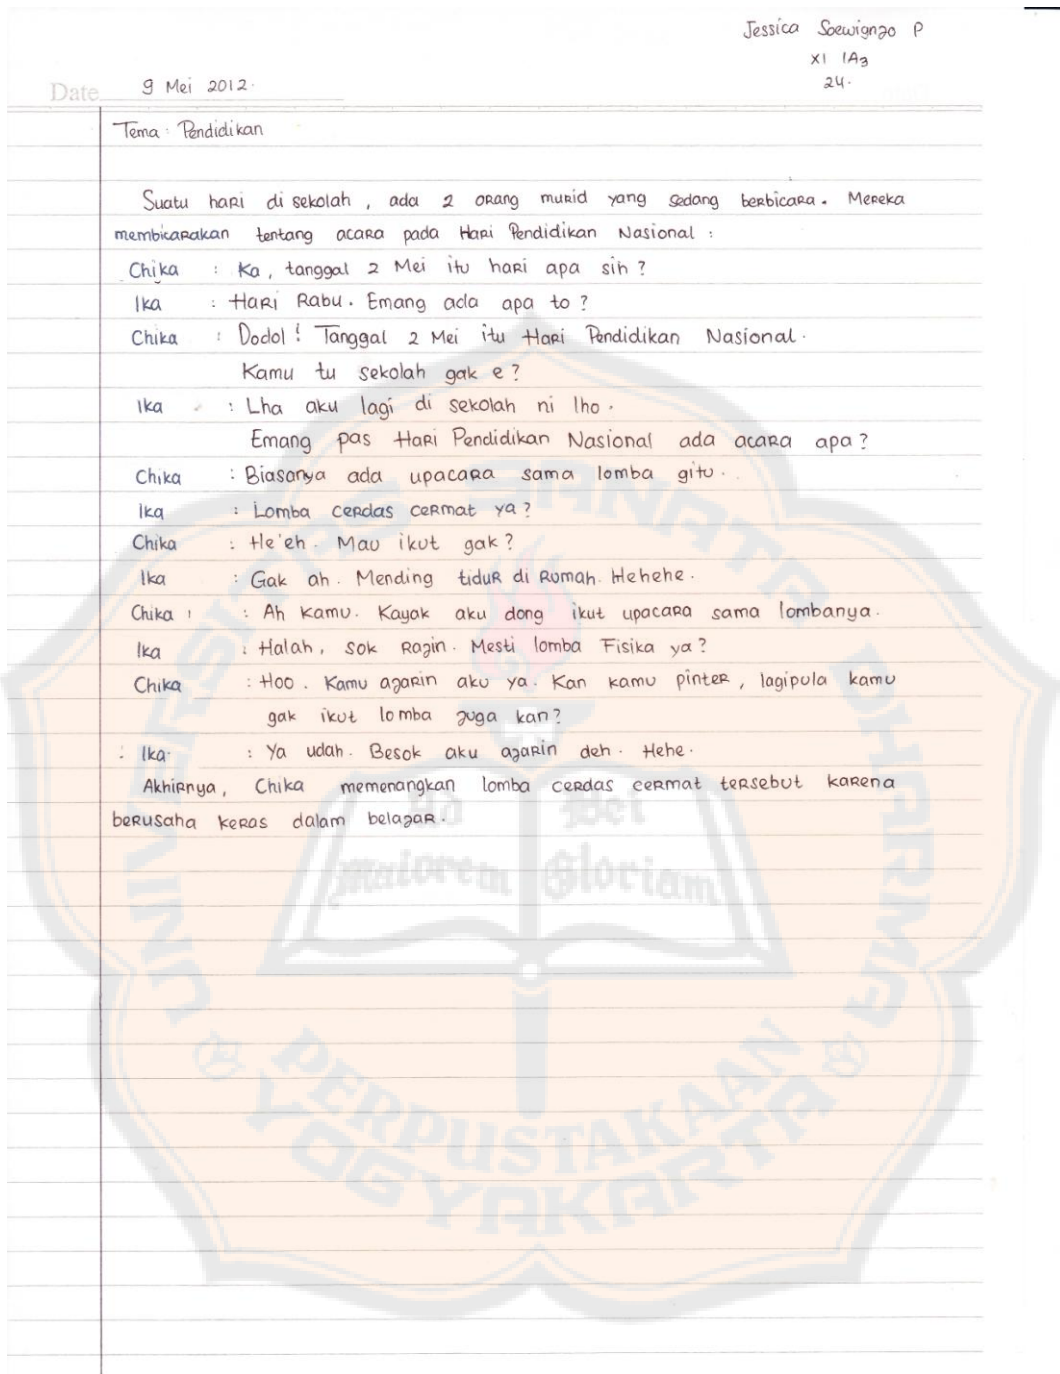 Jessica Soewignjo P
XI IA3
24.
Date 9 Mei 2012.
Tema : Pendidikan
Suatu hari di sekolah, ada 2 orang murid yang sedang berbicara. Mereka
membicarakan tentang acara pada Hari Pendidikan Nasional :
Chika : Ka, tanggal 2 Mei itu hari apa sih?
Ika : Hari Rabu. Emang ada apa to?
Chika : Dodol! Tanggal 2 Mei itu Hari Pendidikan Nasional.
Kamu tu sekolah gak e?
Ika : Lha aku lagi di sekolah ni lho.
Emang pas Hari Pendidikan Nasional ada acara apa?
Chika : Biasanya ada upacara sama lomba gitu.
Ika : Lomba cerdas cermat ya?
Chika : He'eh. Mau ikut gak?
Ika : Gak ah. Mending tidur di rumah. Hehehe.
Chika : Ah kamu. Kayak aku dong ikut upacara sama lombanya.
Ika : Halah, sok rajin. Mesti lomba Fisika ya?
Chika : Hoo. Kamu ajarin aku ya. Kan kamu pinter, lagipula kamu
gak ikut lomba juga kan?
Ika : Ya udah. Besok aku ajarin deh. Hehe.
Akhirnya, Chika memenangkan lomba cerdas cermat tersebut karena
berusaha keras dalam belajar.
UNIVERSITAS SANATA DHARMA
Ad Dei
maiorem Gloriam
PERPUSTAKAAN
YOGYAKARTA